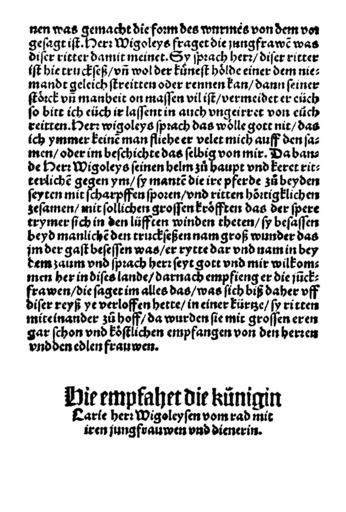 nen was gemacht die form des wurmes von dem vor
gesagt ist. Herr Wigoleys fraget die jungfrawē was
diser ritter damit meinet. Sy sprach herr/ diser ritter
ist hie truckseß/ vñ wol der künest hölde einer dem nie-
mandt geleich streitten oder rennen kan/ dann seiner
störck vñ manheit on massen vil ist/ vermeidet er eüch
so bitt ich eüch ir lassent in auch vngeirret von eüch
reitten. Herr wigoleys sprach das wölle gott nit/ das
ich ymmer keinē man fliehe er velet mich auff den sa-
men/ oder im beschichte das selbig von mir. Da ban-
de Herr Wigoleys seinen helm zů haupt vnd keret rit-
terlichē gegen ym/ sy mantē die ire pferde zů beyden
seyten mit scharpffen sporen/ vnd ritten hörtigklichen
zesamen/ mit sollichen grossen kröfften das der spere
trymer sich in den lüfften winden theten/ sy besassen
beyd manlichē des truckseßen nam groß wunder das
jm der gast besessen was/ er rytte dar vnd nam in bey
dem zaum vnd sprach herr seyt gott vnd mir wilkom-
men her in dises lande/ darnach empfieng er die jūck-
frawen/ die saget im alles das/ was sich biß daher vff
diser reyß ye verloffen hette/ in einer kürtze/ sy ritten
miteinander zů hoff/ da wurden sie mit grossen eren
gar schon vnd köstlichen empfangen von den herren
vnd den edlen frauwen.
Hie empfahet die künigin
Larie herr Wigoleysen vom rad mit
iren jungfrauwen vnd dienerin.